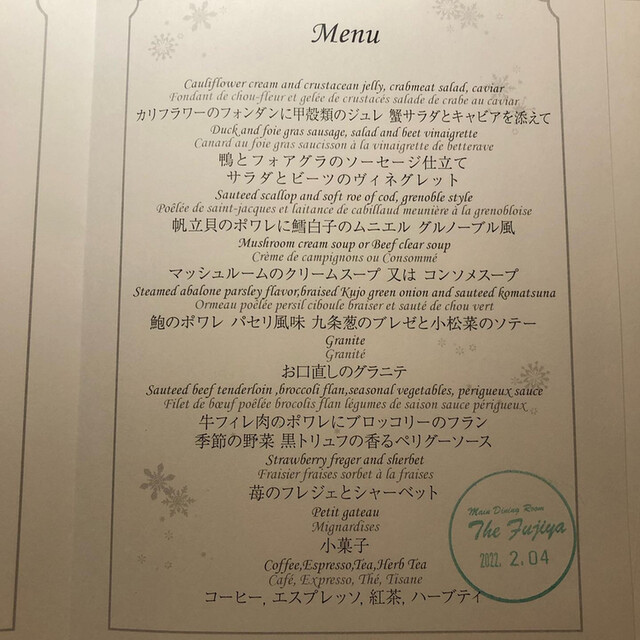 Menu
Cauliflower cream and crustacean jelly, crabmeat salad, caviar
Fondant de chou-fleur et gelée de crustacés salade de crabe au caviar
カリフラワーのフォンダンに甲殻類のジュレ 蟹サラダとキャビアを添えて
Duck and foie gras sausage, salad and beet vinaigrette
Canard au foie gras saucisson à la vinaigrette de betterave
鴨とフォアグラのソーセージ仕立て
サラダとビーツのヴィネグレット
Sauteed scallop and soft roe of cod, grenoble style
Poêlée de saint-jacques et laitance de cabillaud meunière à la grenobloise
帆立貝のポワレに鱈白子のムニエル グルノーブル風
Mushroom cream soup or Beef clear soup
Crème de campignons ou Consommé
マッシュルームのクリームスープ 又は コンソメスープ
Steamed abalone parsley flavor,braised Kujo green onion and sauteed komatsuna
Ormeau poêlée persil ciboule braiser et sauté de chou vert
鮑のポワレ パセリ風味 九条葱のブレゼと小松菜のソテー
Granite
Granité
お口直しのグラニテ
Sauteed beef tenderloin ,broccoli flan,seasonal vegetables, périgueux sauce
Filet de bœuf poêlée brocolis flan légumes de saison sauce périgueux
牛フィレ肉のポワレにブロッコリーのフラン
季節の野菜 黒トリュフの香るペリグーソース
Strawberry freger and sherbet
Fraisier fraises sorbet à la fraises
苺のフレジェとシャーベット
Petit gateau
Mignardises
小菓子
Coffee,Espresso,Tea,Herb Tea
Café, Expresso, Thé, Tisane
コーヒー, エスプレッソ, 紅茶, ハーブティ
Main Dining Room
The Fujiya
2022. 2.04